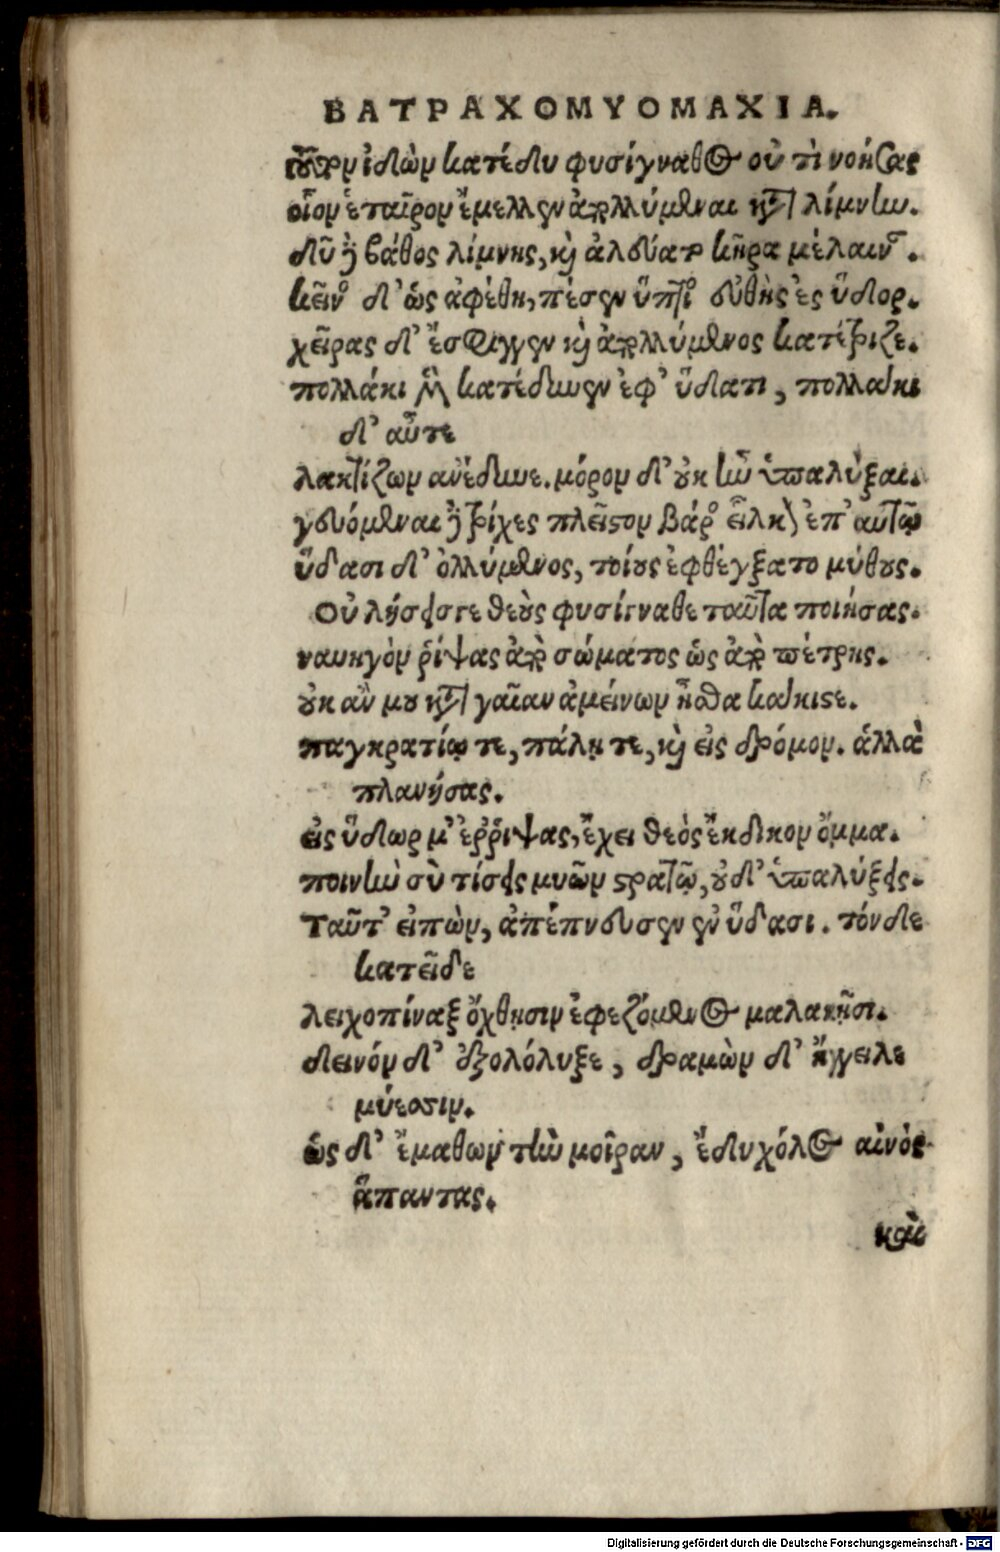 ΒΑΤΡΑΧΟΜΥΟΜΑΧΙΑ.
τοῦτον ἰδὼν κατέδυ φυσίγναθος οὔ τι νοήσας
οἷον ἑταῖρον ἔμελλεν ἀπολλύμεναι κατὰ λίμνην.
δῦ δὲ βάθος λίμνης, καὶ ἀλεύατο κῆρα μέλαιναν.
κεῖνος δ' ὡς ἀφέθη, πέσεν ὕπτιος εὐθὺς ἐς ὕδωρ.
χεῖρας δ' ἔσφιγγεν καὶ ἀπολλύμενος κατέτριζε.
πολλάκι μὲν κατέδυνεν ἐφ' ὕδατι, πολλάκι
δ' αὖτε
λακτίζων ἀνέδυνε. μόρον δ' οὐκ ἦν ὑπαλύξαι.
δευόμεναι δὲ τρίχες πλεῖστον βάρος εἷλκον ἐπ' αὐτῷ
ὕδασι δ' ὀλλύμενος, τοίους ἐφθέγξατο μύθους.
Οὐ λήσεις γε θεοὺς φυσίγναθε ταῦτα ποιήσας.
ναυηγὸν ῥίψας ἀπὸ σώματος ὡς ἀπὸ πέτρης.
οὐκ ἄν μου κατὰ γαῖαν ἀμείνων ἦσθα κάκιστε.
παγκρατίῳ τε, πάλῃ τε, καὶ εἰς δρόμον. ἀλλὰ
πλανήσας.
εἰς ὕδωρ μ' ἔρριψας, ἔχει θεὸς ἔκδικον ὄμμα.
ποινὴν σὺ τίσεις μυῶν στρατῷ, οὐδ' ὑπαλύξεις.
Ταῦτ' εἰπὼν, ἀπέπνευσεν ἐν ὕδασι. τόνδε
κατεῖδε
λειχοπίναξ ὄχθῃσιν ἐφεζόμενος μαλακῇσι.
δεινὸν δ' ἐξολόλυξε, δραμὼν δ' ἤγγειλε
μύεσσιν.
ὡς δ' ἔμαθων τὴν μοῖραν, ἔδυ χόλος αἰνὸς
ἅπαντας.
καὶ
Digitalisierung gefördert durch die Deutsche Forschungsgemeinschaft - DFG